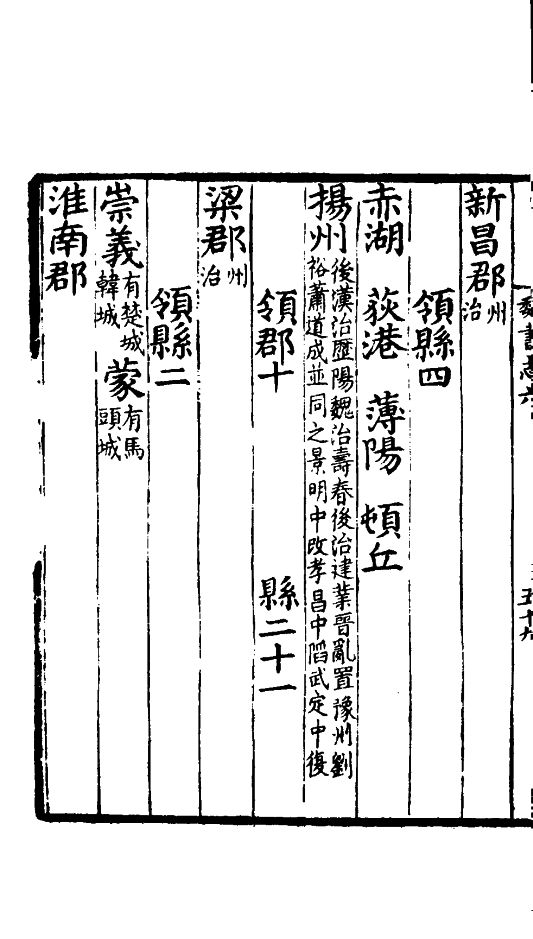 魏書志六 五十九
新昌郡州治
領縣四
赤湖 荻港 薄陽 頓丘
揚州後漢治歷陽魏治壽春後治建業晉亂置豫州劉
裕蕭道成並同之景明中改孝昌中陷武定中復
領郡十 縣二十一
梁郡州治
領縣二
崇義有楚城韓城 蒙有馬頭城
淮南郡